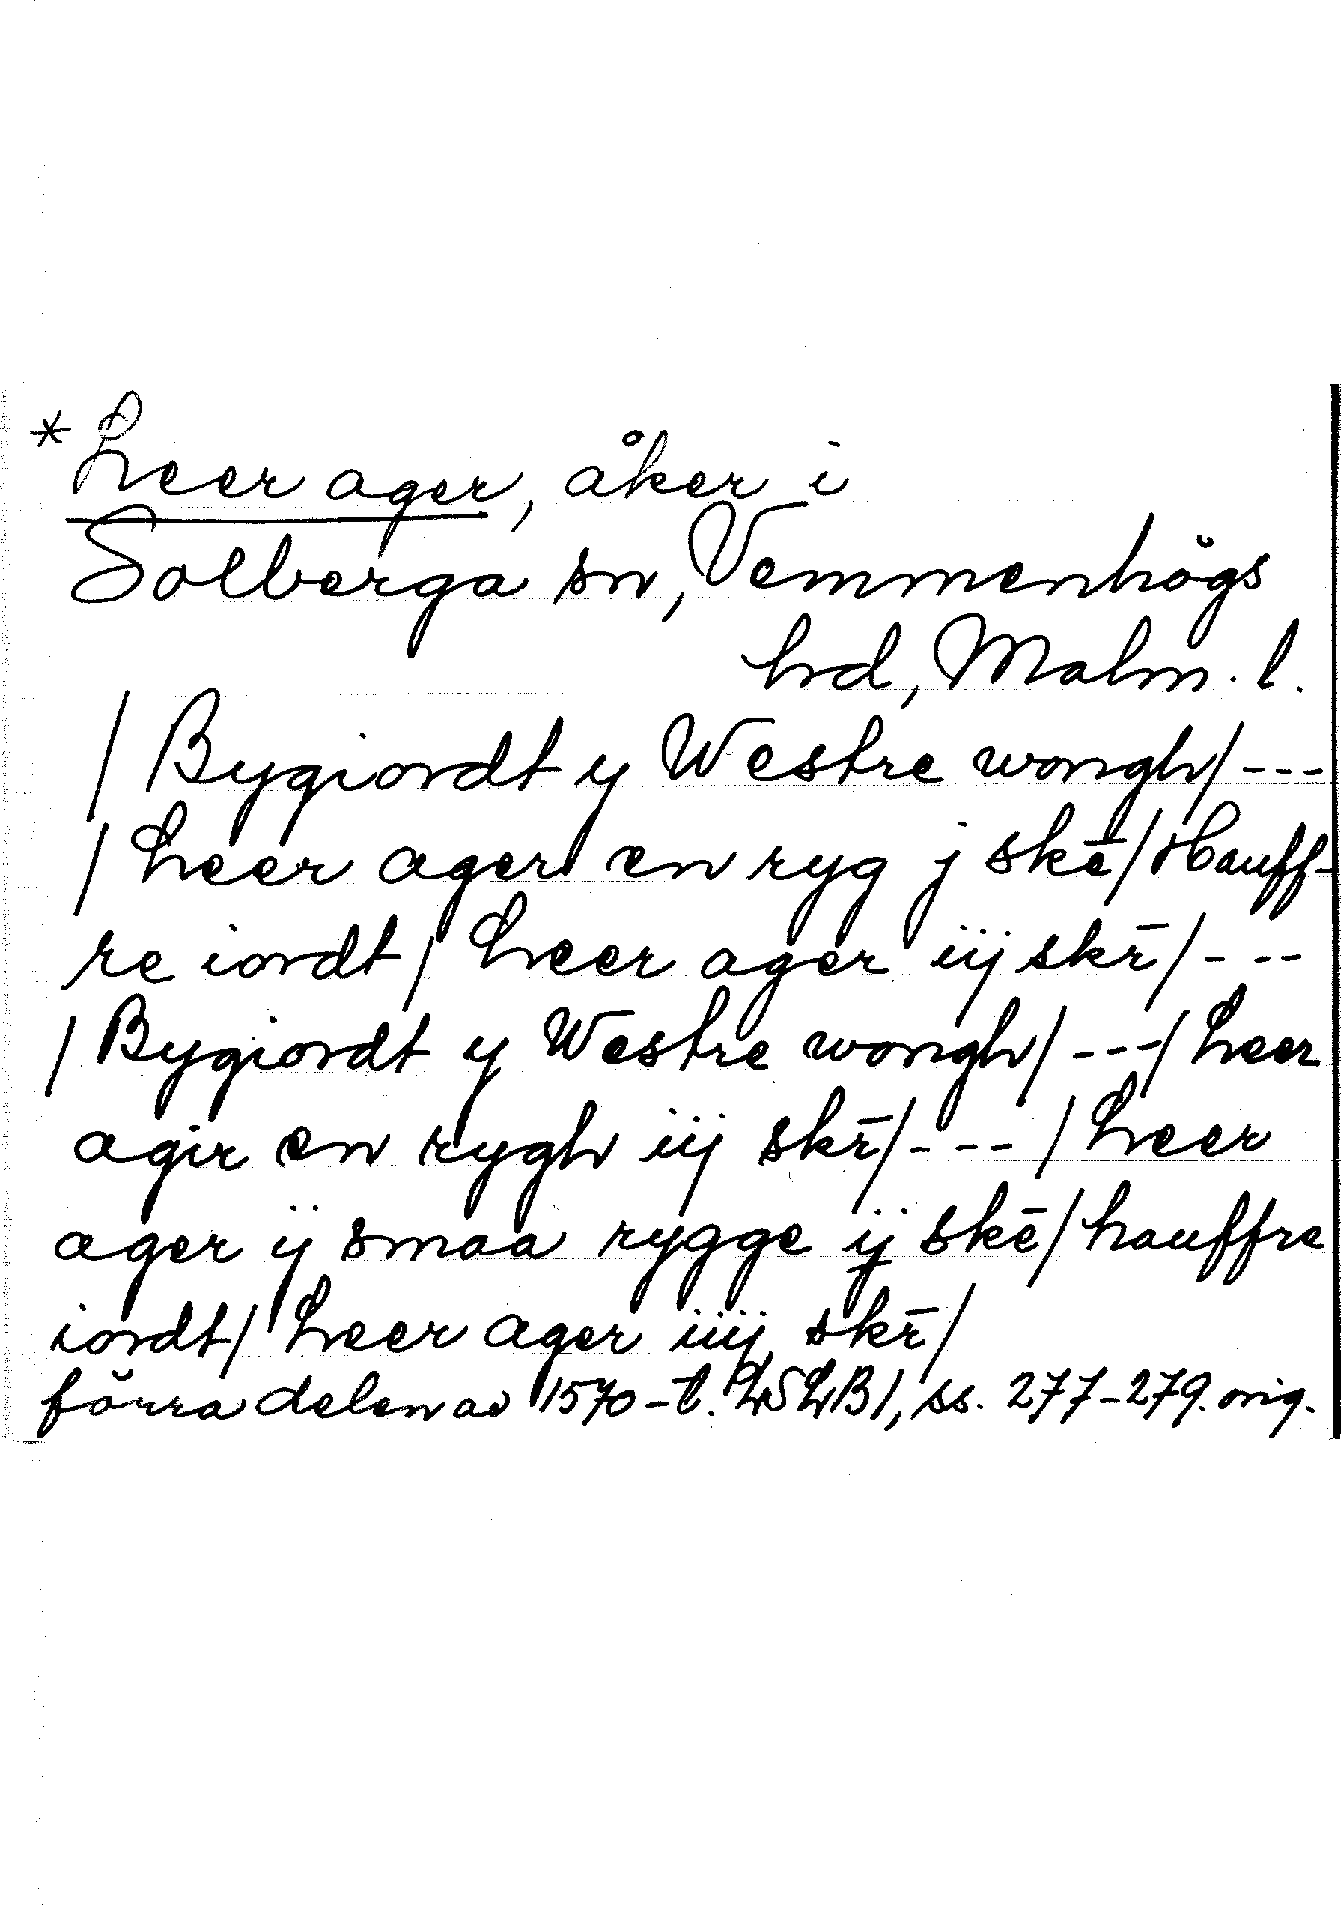 * Leer ager, åker i
Solberga sn, Vemmenhögs
hd, Malm. l.
/ Bygiordt y Westre wongh/ ---
/ Leer ager en ryg j skē/ Hauff-
re iordt/ Leer ager iij skr̄/ ---
/ Bygiordt y Westre wongh/ ---/ Leer
agir en rygh iij skr̄/ --- / Leer
ager ij smaa rygge ij skē/ hauffre
iordt/ Leer ager iiij skr̄/
förra delen av 1570-t. LSLB1, ss. 277-279. orig.